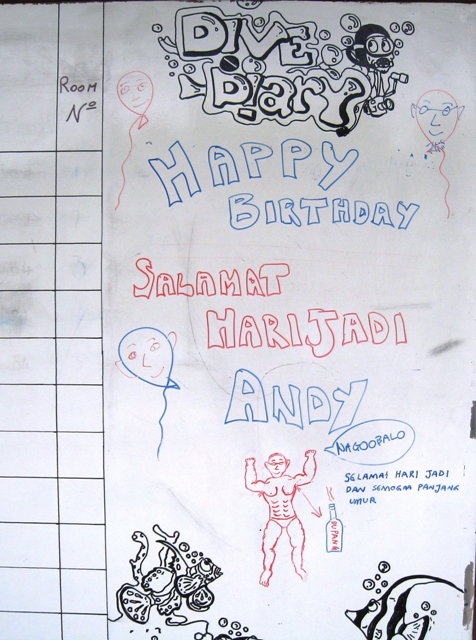 Room
Nº
DIVE
Diary
HAPPY
BIRTHDAY
SALAMAT
HARIJADI
ANDY
NAGOOBALO
SELAMAT HARI JADI
DAN SEMOGAA PANJANG
UMUR